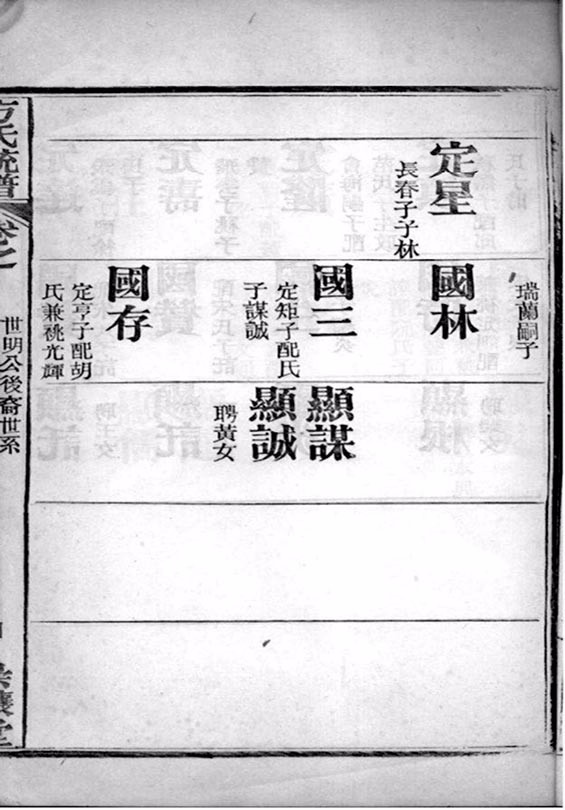 定星
長春子子林
瑞蘭嗣子
國林
國三
定矩子配氏
子謀誠
國存
定亨子配胡
氏兼祧光輝
顯謀
顯誠
聘黃女
方氏統譜
卷之
世明公後裔世系